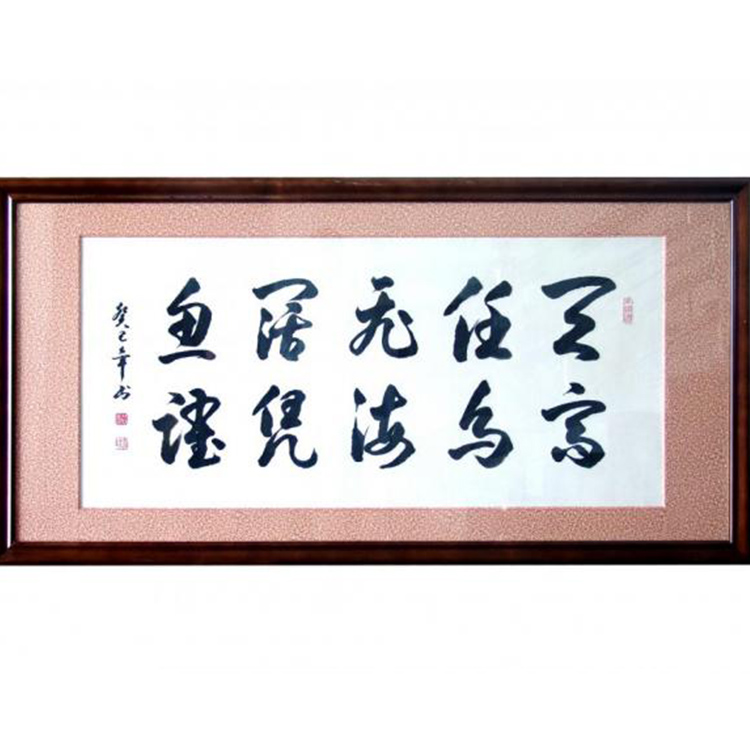 天高
任鸟
飞海
阔凭
鱼躍
癸巳书